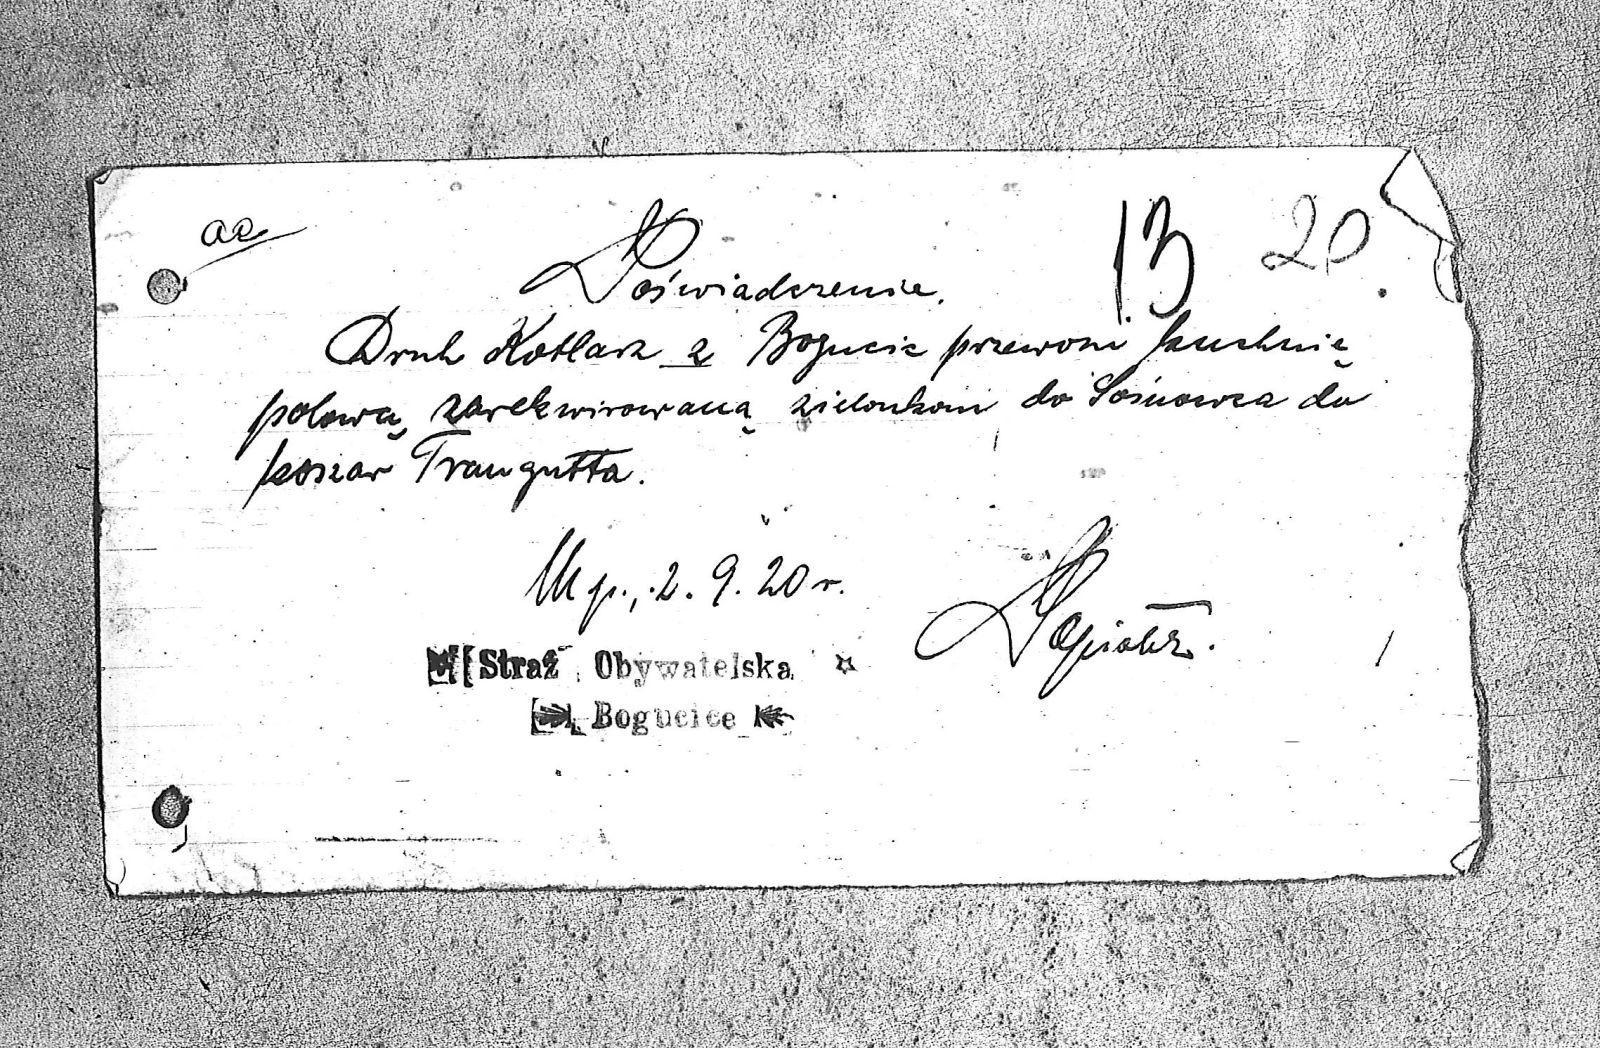 aa
13 20
Poświadczenie.
Druh Kotlarz z Bogucic przewozi kuchnię
polową, zarekwirowaną zielonkom do Sosnowca do
koszar Traugutta.
Mp., 2. 9. 20 r.
Straż Obywatelska
Bogucice